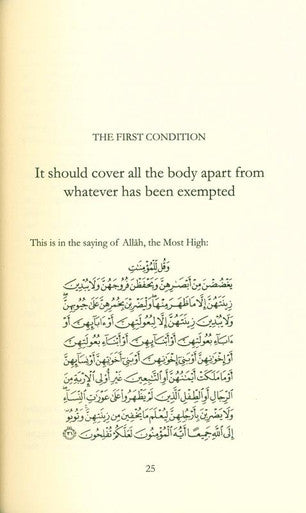 THE FIRST CONDITION
It should cover all the body apart from
whatever has been exempted
This is in the saying of Allāh, the Most High:
وَقُل لِّلْمُؤْمِنَٰتِ
يَغْضُضْنَ مِنْ أَبْصَٰرِهِنَّ وَيَحْفَظْنَ فُرُوجَهُنَّ وَلَا يُبْدِينَ
زِينَتَهُنَّ إِلَّا مَا ظَهَرَ مِنْهَا وَلْيَضْرِبْنَ بِخُمُرِهِنَّ عَلَىٰ جُيُوبِهِنَّ
وَلَا يُبْدِينَ زِينَتَهُنَّ إِلَّا لِبُعُولَتِهِنَّ أَوْ ءَابَآئِهِنَّ أَوْ
ءَابَآءِ بُعُولَتِهِنَّ أَوْ أَبْنَآئِهِنَّ أَوْ أَبْنَآءِ بُعُولَتِهِنَّ
أَوْ إِخْوَٰنِهِنَّ أَوْ بَنِىٓ إِخْوَٰنِهِنَّ أَوْ بَنِىٓ أَخَوَٰتِهِنَّ أَوْ نِسَآئِهِنَّ
أَوْ مَا مَلَكَتْ أَيْمَٰنُهُنَّ أَوِ ٱلتَّٰبِعِينَ غَيْرِ أُو۟لِى ٱلْإِرْبَةِ مِنَ
ٱلرِّجَالِ أَوِ ٱلطِّفْلِ ٱلَّذِينَ لَمْ يَظْهَرُوا۟ عَلَىٰ عَوْرَٰتِ ٱلنِّسَآءِ
وَلَا يَضْرِبْنَ بِأَرْجُلِهِنَّ لِيُعْلَمَ مَا يُخْفِينَ مِن زِينَتِهِنَّ وَتُوبُوٓا۟
إِلَى ٱللَّهِ جَمِيعًا أَيُّهَ ٱلْمُؤْمِنُونَ لَعَلَّكُمْ تُفْلِحُونَ ٣١
25